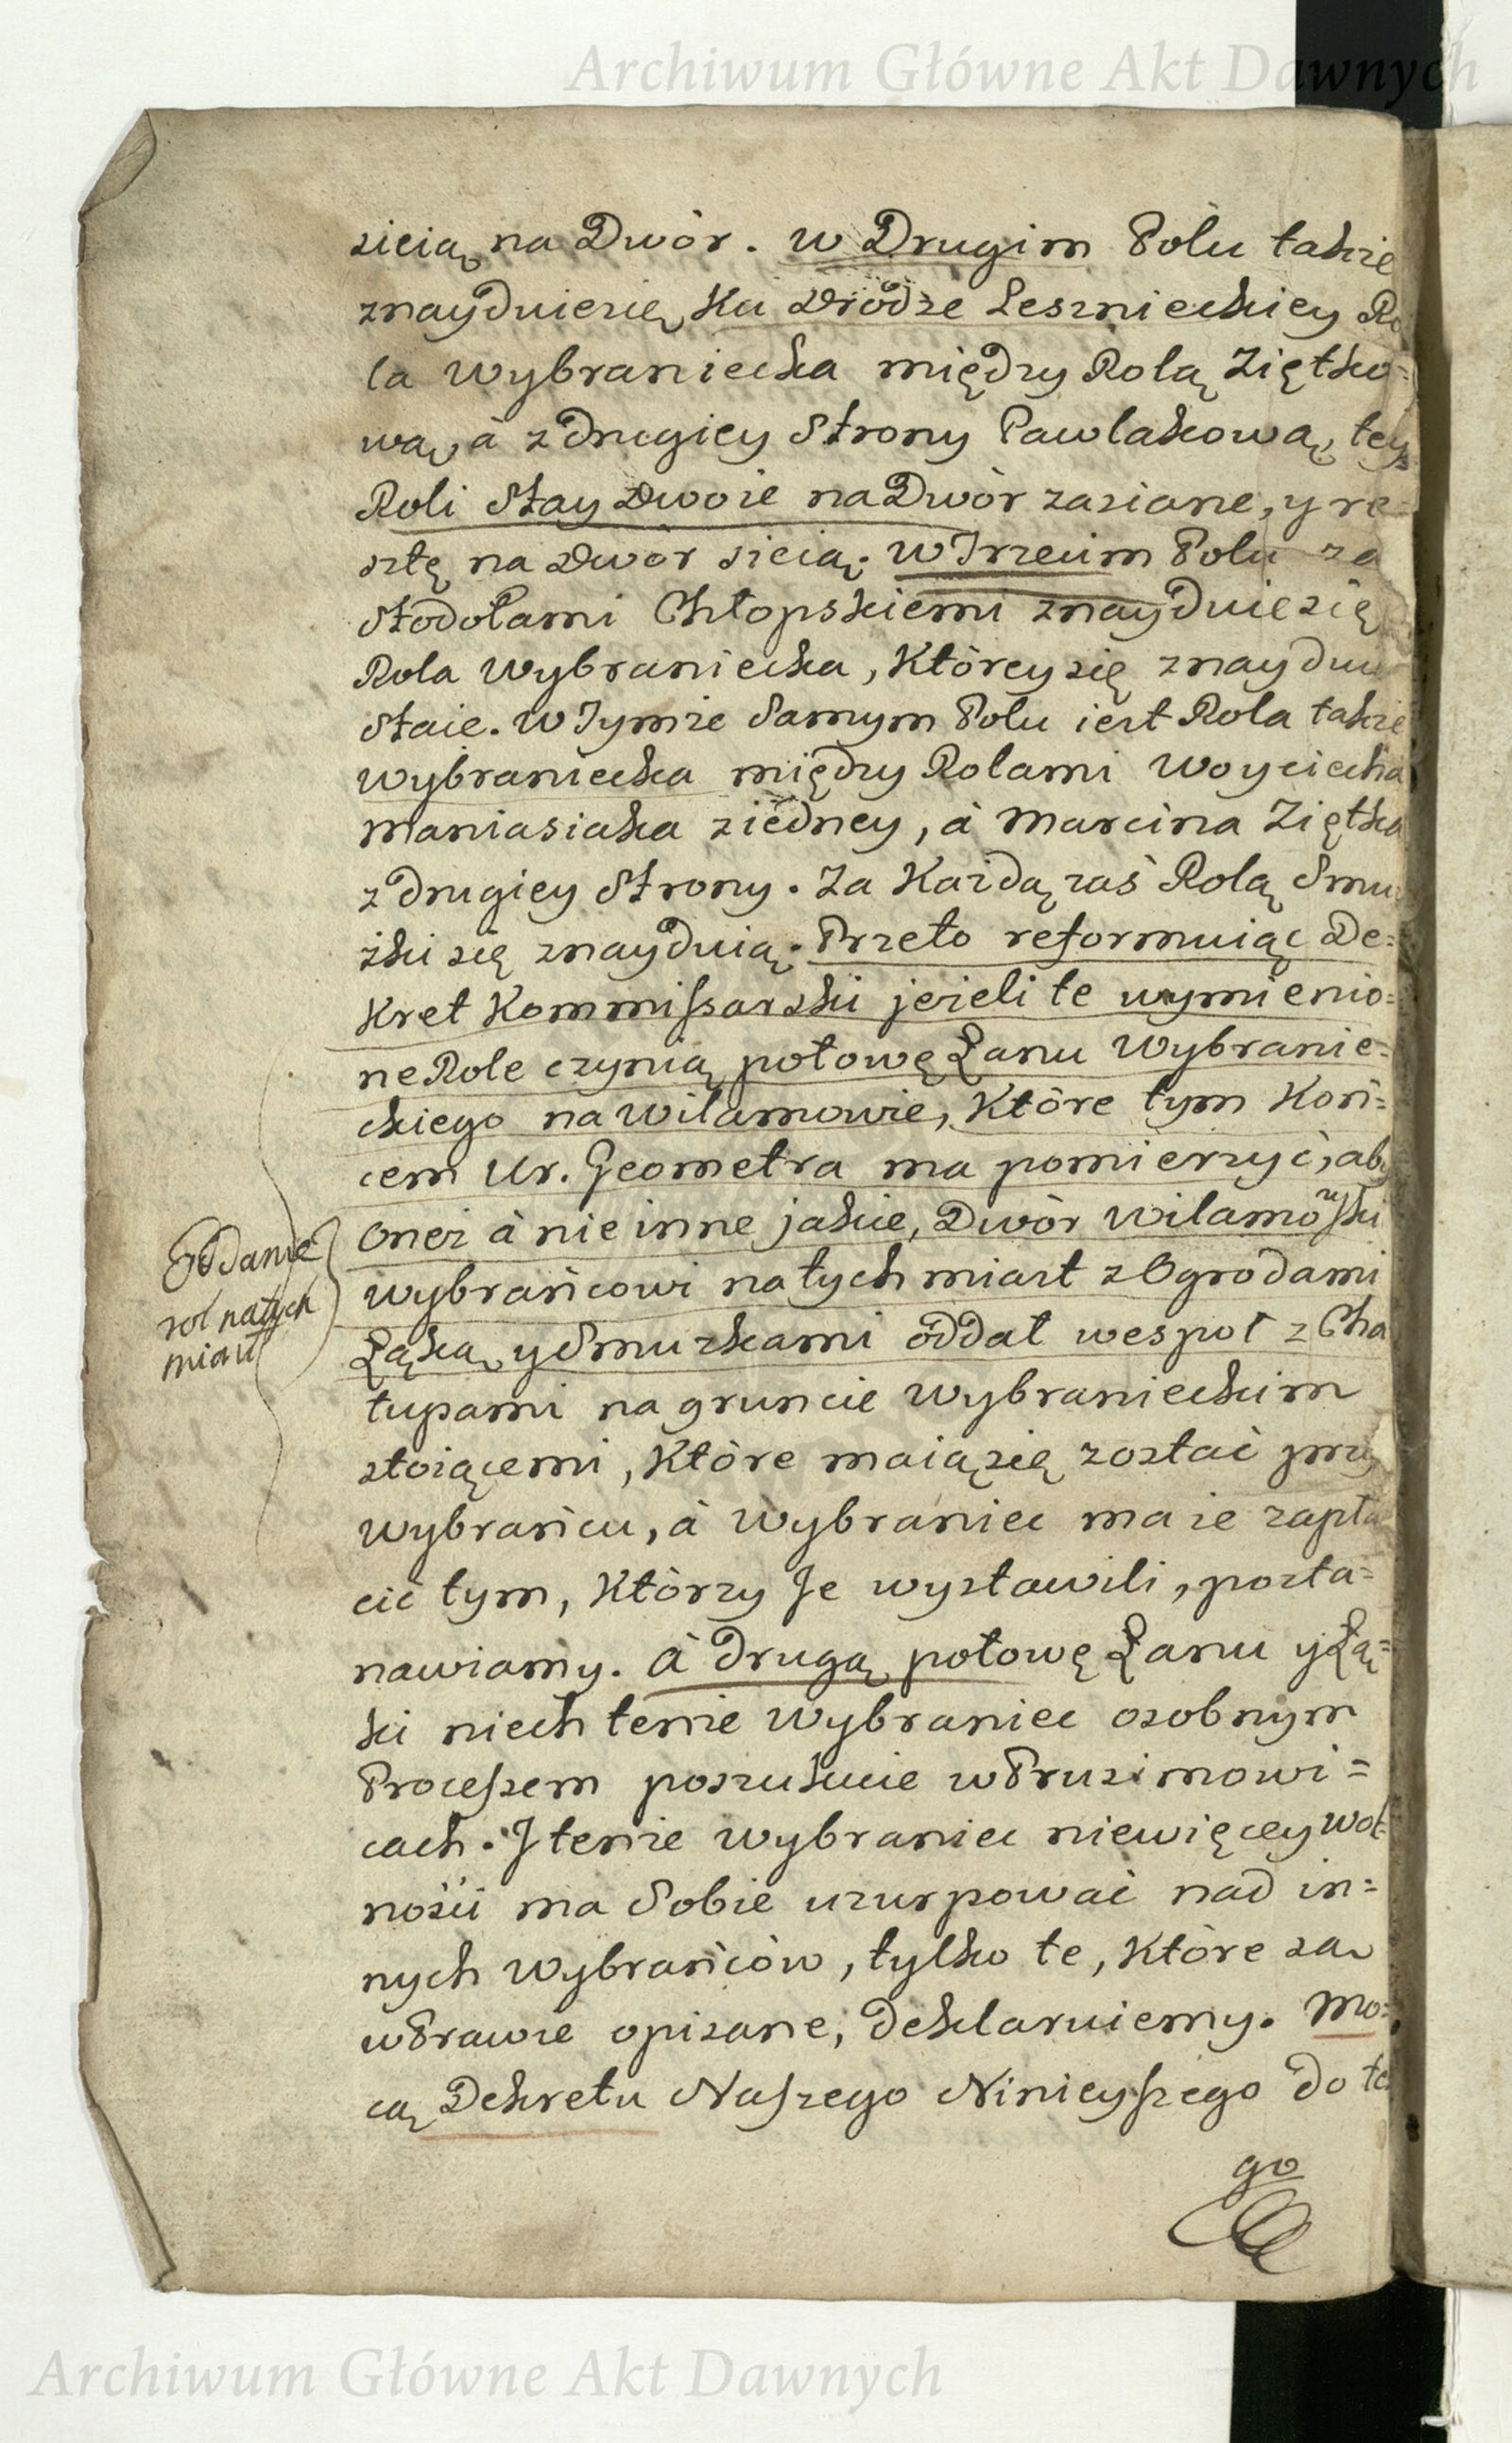 Archiwum Główne Akt Dawnych
sieią na Dwór. w Drugim Polu takze
znayduiesię Ku Drodze Lesznieckiey Ro
la Wybraniecka między Rolą Ziętko=
wą, à z drugiey Strony Pawlakową, tey
Roli Stay Dwoie na Dwór zasiane, y re=
sztę na Dwór sieią. W Trzecim Polu za
Stodołami Chłopskiemi znayduie się
Rola Wybraniecka, Którey się znaydui
Staie. W Tymze Samym Polu iest Rola takze
Wybraniecka między Rolami Woyciecha
Maniasiaka ziedney, à Marcina Ziętka
z drugiey Strony. Za Kazdą zaś Rolą Smu
zki się znayduią. Przeto reformuiąc De=
Kret Kommissarski jezeli te wymienio=
ne Role czynią połowę Łanu Wybranie=
ckiego na Wilamowie, Które tym Koń=
cem Ur. Geometra ma pomierzyć, aby
onez à nie inne jakie, Dwór Wilamowski
Oddanie
rol natych
miast
wybrańcowi natychmiast z Ogrodami
Łąką, y Smuzkami oddał wespoł z Cha
łupami na gruncie Wybranieckim
stoiącemi, Które maią się zostać przy
Wybrańcu, à Wybraniec ma ie zapła
cić tym, Którzy Je wystawili, posta=
nawiamy. à drugą połowę Łanu y Łą=
ki niech tenze Wybraniec osobnym
Processem poszukuie w Prusimowi=
cach. I tenze Wybraniec niewięcey Wol=
ności ma Sobie uzurpować nad in=
nych Wybrańców, tylko te, Które są
w Prawie opisane, deklaruiemy. Mo=
cą Dekretu Naszego Ninieyszego do te
go
Archiwum Główne Akt Dawnych